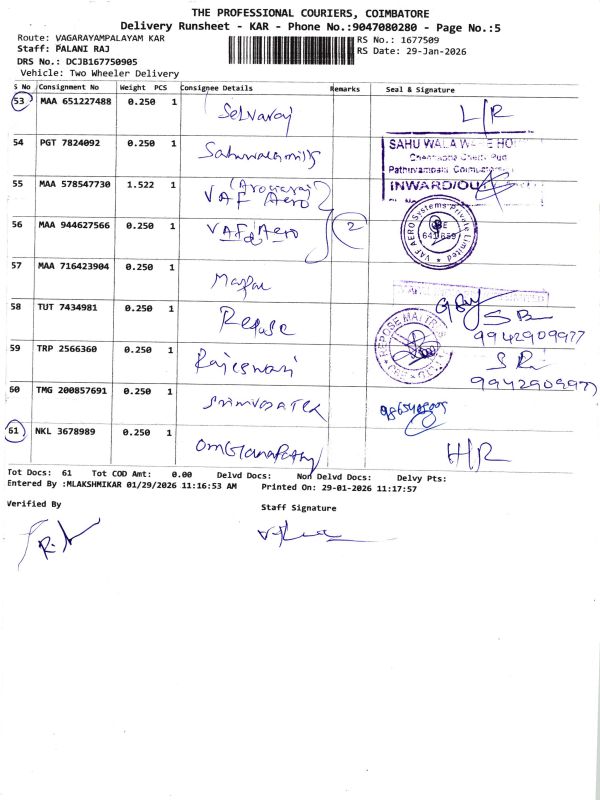 THE PROFESSIONAL COURIERS, COIMBATORE
Delivery Runsheet - KAR - Phone No.:9047080280 - Page No.:5
Route: VAGARAYAMPALAYAM KAR
RS No.: 1677509
Staff: PALANI RAJ
RS Date: 29-Jan-2026
DRS No.: DCJB167750905
Vehicle: Two Wheeler Delivery
S No Consignment No Weight PCS Consignee Details Remarks Seal & Signature
53 MAA 651227488 0.250 1 Selvaraj L/R
54 PGT 7824092 0.250 1
SAHU WALA
INWARD/OU
55 MAA 578547730 1.522 1 VAF Aero
56 MAA 944627566 0.250 1 VAF Aero 2
VAF AERO Systems Private Limited
57 MAA 716423904 0.250 1
58 TUT 7434981 0.250 1 Repose
REPOSE MATTRESS
9942909977
59 TRP 2566360 0.250 1 Rajeswari
9942909977
60 TMG 200857691 0.250 1
61 NKL 3678989 0.250 1 OmGanapathy H/R
Tot Docs: 61 Tot COD Amt: 0.00 Delvd Docs: Non Delvd Docs: Delvy Pts:
Entered By :MLAKSHMIKAR 01/29/2026 11:16:53 AM Printed On: 29-01-2026 11:17:57
Verified By
Staff Signature